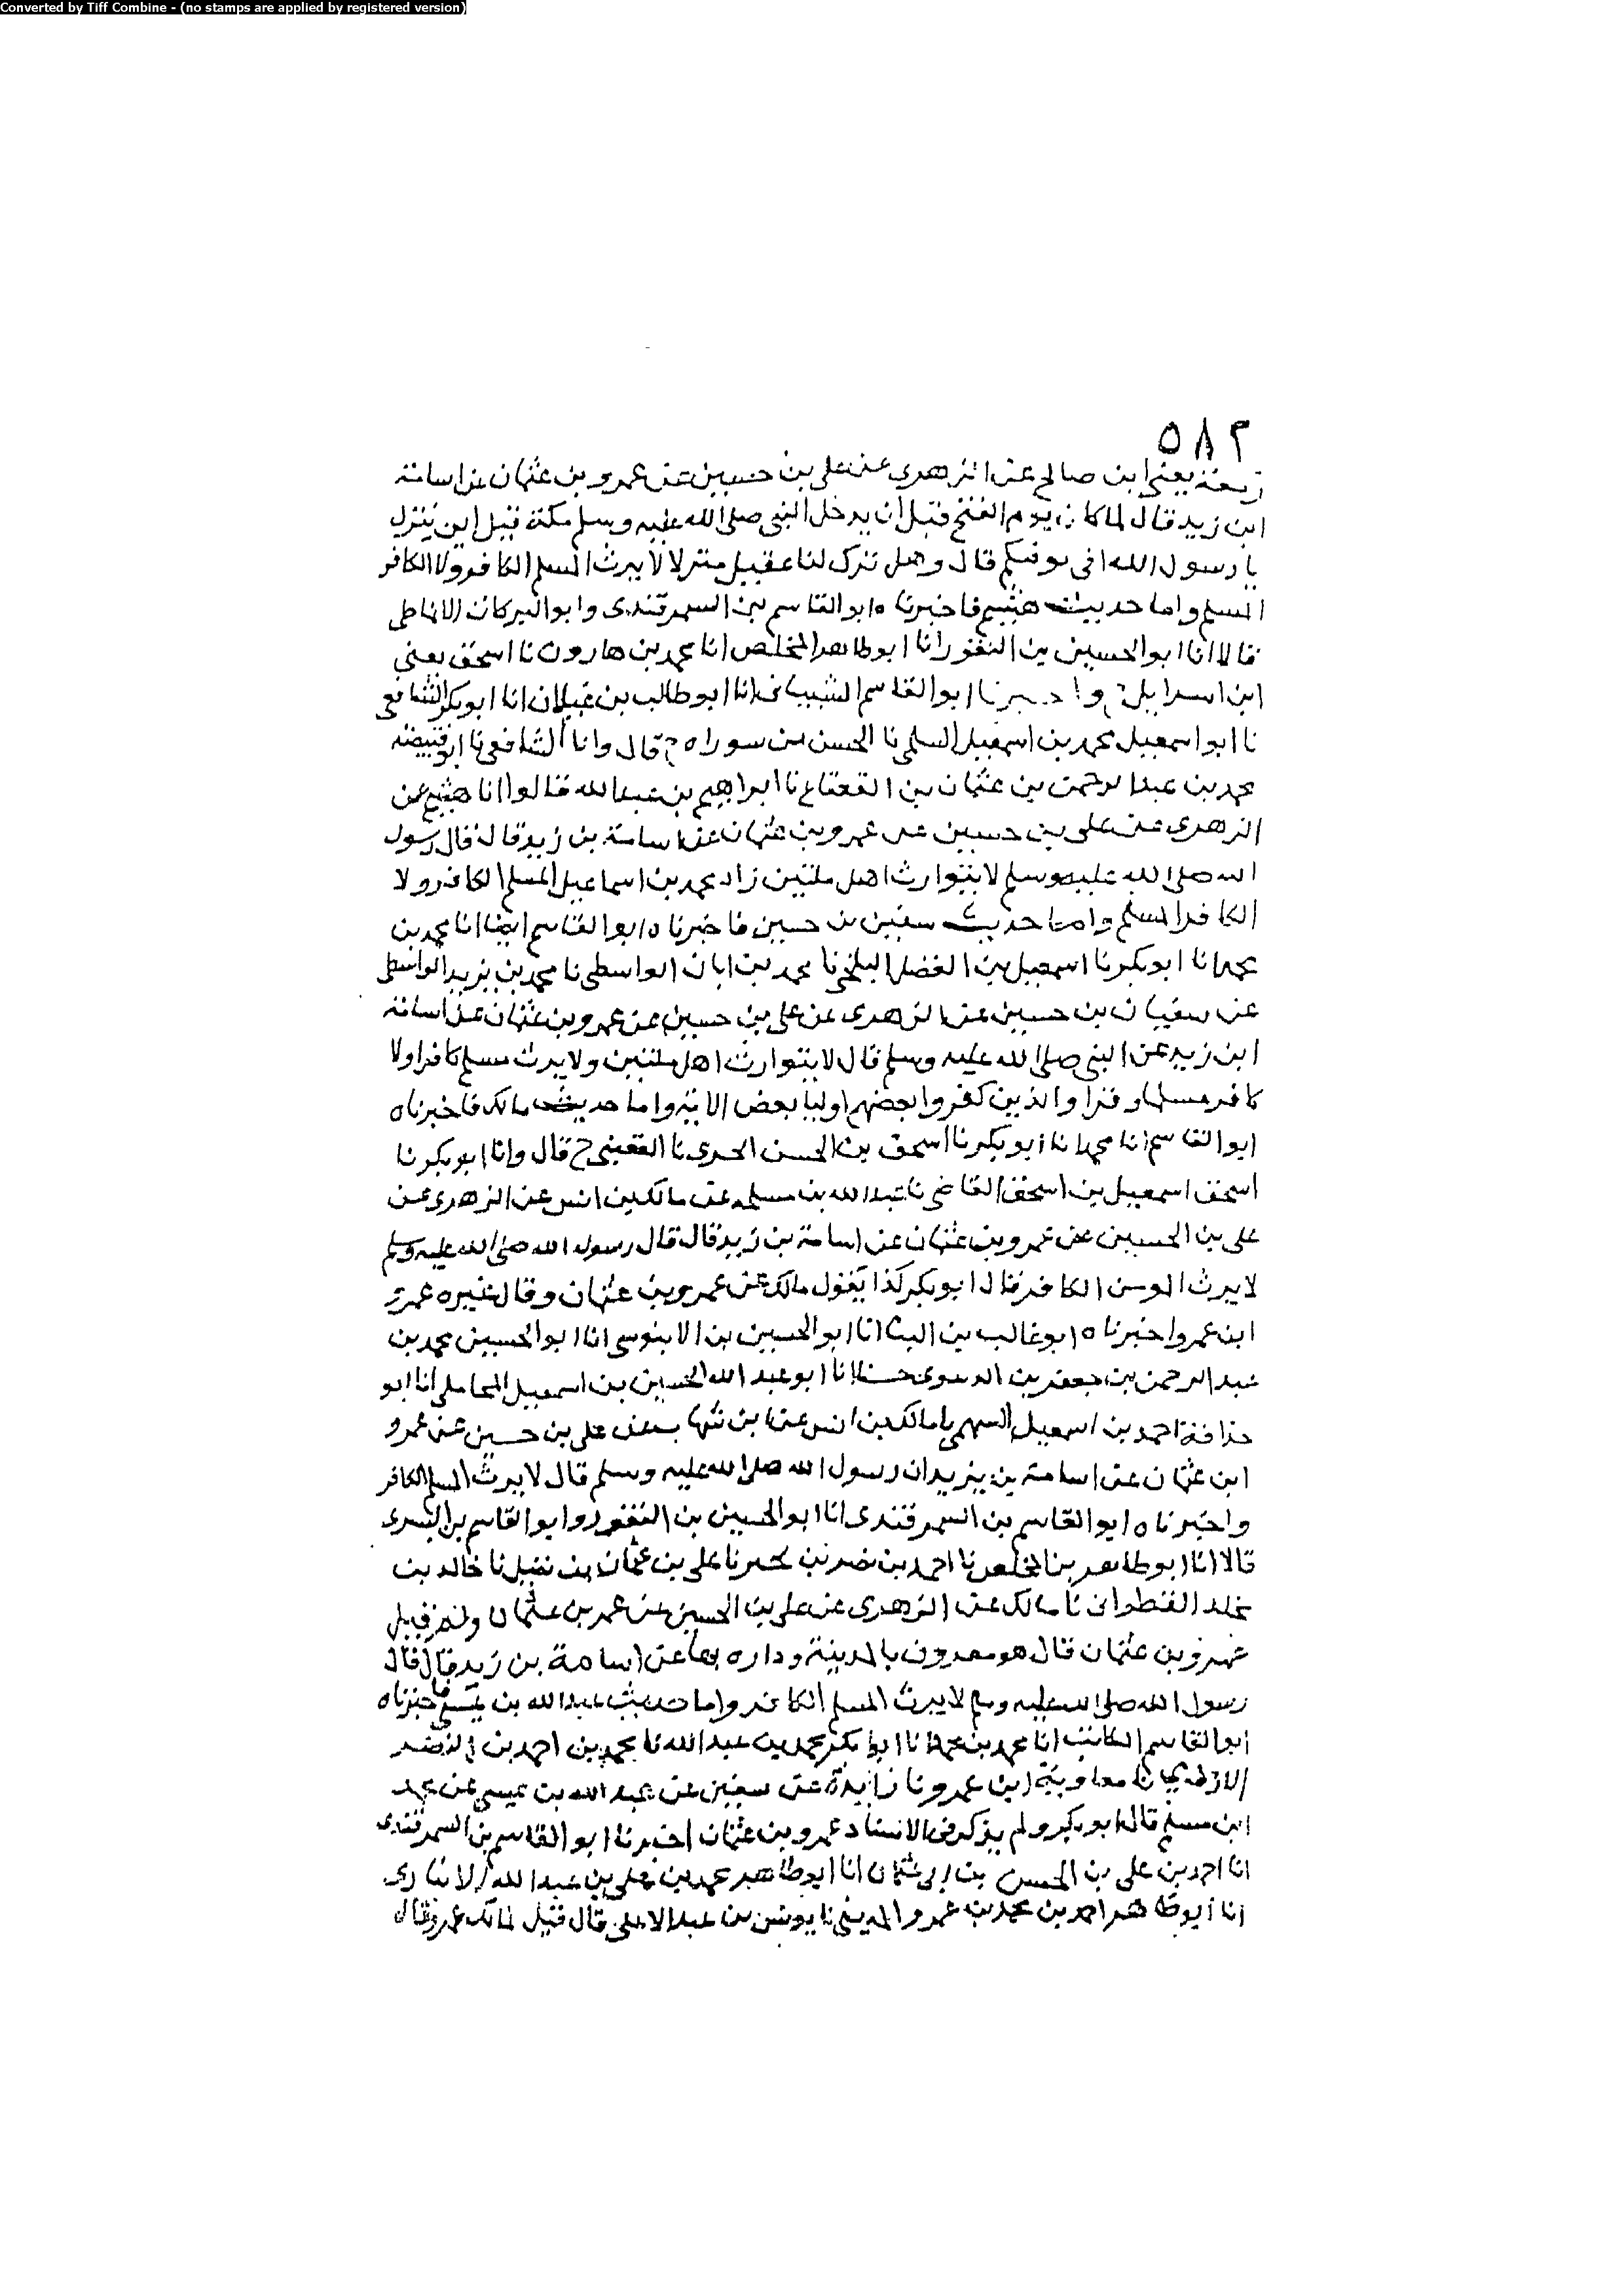 Converted by Tiff Combine - (no stamps are applied by registered version)
٥٨٢
زمعة يعنى ابن صالح عن الزهرى عن على بن حسين عن عمرو بن عثمان عن اسامة
ابن زيد قال لما كان يوم الفتح قبل ان يدخل النبى صلى الله عليه وسلم مكة قيل اين ينزل
يا رسول الله افى بيوتكم قال وهل ترك لنا عقيل منزلا لا يرث المسلم الكافر ولا الكافر
المسلم واما حديث هشيم فاخبرناه ابو القاسم بن السمرقندى وابو البركات الانماطى
قالا انا ابو الحسين بن النقور انا ابو طاهر المخلص انا محمد بن هارون نا اسحق يعنى
ابن اسرايل ح واخبرنا ابو القاسم الشيبانى انا ابو طالب بن غيلان انا ابو بكر الشافعى
نا ابو اسمعيل محمد بن اسمعيل السلمى نا الحسن بن سوراه ح قال وانا الشافعى نا ابو قبيصة
محمد بن عبد الرحمن بن عثمان بن القعقاع نا ابراهيم بن عبد الله قالوا انا هشيم عن
الزهرى عن على بن حسين عن عمرو بن عثمان عن اسامة بن زيد قال قال رسول
الله صلى الله عليه وسلم لا يتوارث اهل ملتين زاد محمد بن اسماعيل المسلم الكافر ولا
الكافر المسلم واما حديث سفين بن حسين فاخبرناه ابو القاسم ايضا انا محمد بن
محمد انا ابو بكر نا اسمعيل بن الفضل البلخى نا محمد بن ابان الواسطى نا محمد بن يزيد الواسطى
عن سفيان بن حسين عن الزهرى عن على بن حسين عن عمرو بن عثمان عن اسامة
ابن زيد عن النبى صلى الله عليه وسلم قال لا يتوارث اهل ملتين ولا يرث مسلم كافرا ولا
كافر مسلما وقرا والذين كفروا بعضهم اوليا بعض الاية واما حديث مالك فاخبرناه
ابو القاسم انا محمد انا ابو بكر نا اسحق بن الحسن الحربى نا القعنبى ح قال وانا ابو بكر نا
اسحق اسمعيل بن اسحق القاضى نا عبد الله بن مسلمه عن مالك بن انس عن الزهرى عن
على بن الحسين عن عمرو بن عثمان عن اسامة بن زيد قال قال رسول الله صلى الله عليه وسلم
لا يرث المومن الكافر قال ابو بكر كذا يقول مالك عن عمرو بن عثمان وقال غيره عمرو
ابن عمرو اخبرناه ابو غالب بن البنا انا ابو الحسين بن الابنوسى انا ابو الحسين محمد بن
عبد الرحمن بن جعفر بن انا ابو عبد الله الحسين بن اسمعيل المحاملى انا ابو
حذافة احمد بن اسمعيل السهمى نا مالك بن انس عن ابن شهاب عن على بن حسين عن عمرو
ابن عثمان عن اسامة بن يزيد ان رسول الله صلى الله عليه وسلم قال لا يرث المسلم الكافر
واخبرناه ابو القاسم بن السمرقندى انا ابو الحسين بن النقور وابو القاسم بن البسرى
قالا انا ابو طاهر بن المخلص نا احمد بن نصر بن بحير نا على بن عثمان بن نفيل نا خالد بن
مخلد القطوانى نا مالك عن الزهرى عن على بن الحسين عن عمر بن عثمان
عمرو بن عثمان قال هو معروف بالمدينة وداره بها عن اسامة بن زيد قال قال
رسول الله صلى الله عليه وسلم لا يرث المسلم الكافر واما حديث عبد الله بن عيسى فاخبرناه
ابو القاسم الكاتب انا محمد بن محمد انا ابو بكر محمد بن عبد الله نا محمد بن احمد بن النضر
الازدى نا معاوية ابن عمرو نا زايدة عن سفين عن عبد الله بن عيسى عن محمد
ابن مسلم قال ابو بكر ولم يذكر فى الاسناد عمرو بن عثمان اخبرنا ابو القاسم بن السمرقندى
انا احمد بن على بن الحسن بن ابى عثمان انا ابو طاهر محمد بن على بن عبد الله الانبارى
انا ابو طاهر احمد بن محمد بن عمرو المدينى نا يونس بن عبد الاعلى قال قيل لمالك عمر وقال